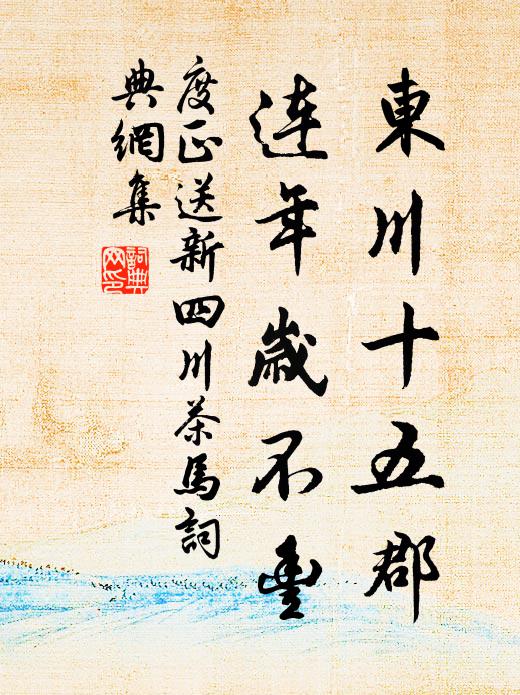 東川十五郡
連年歲不豐
度正送新四川茶馬詞
典網集
詞典
网印